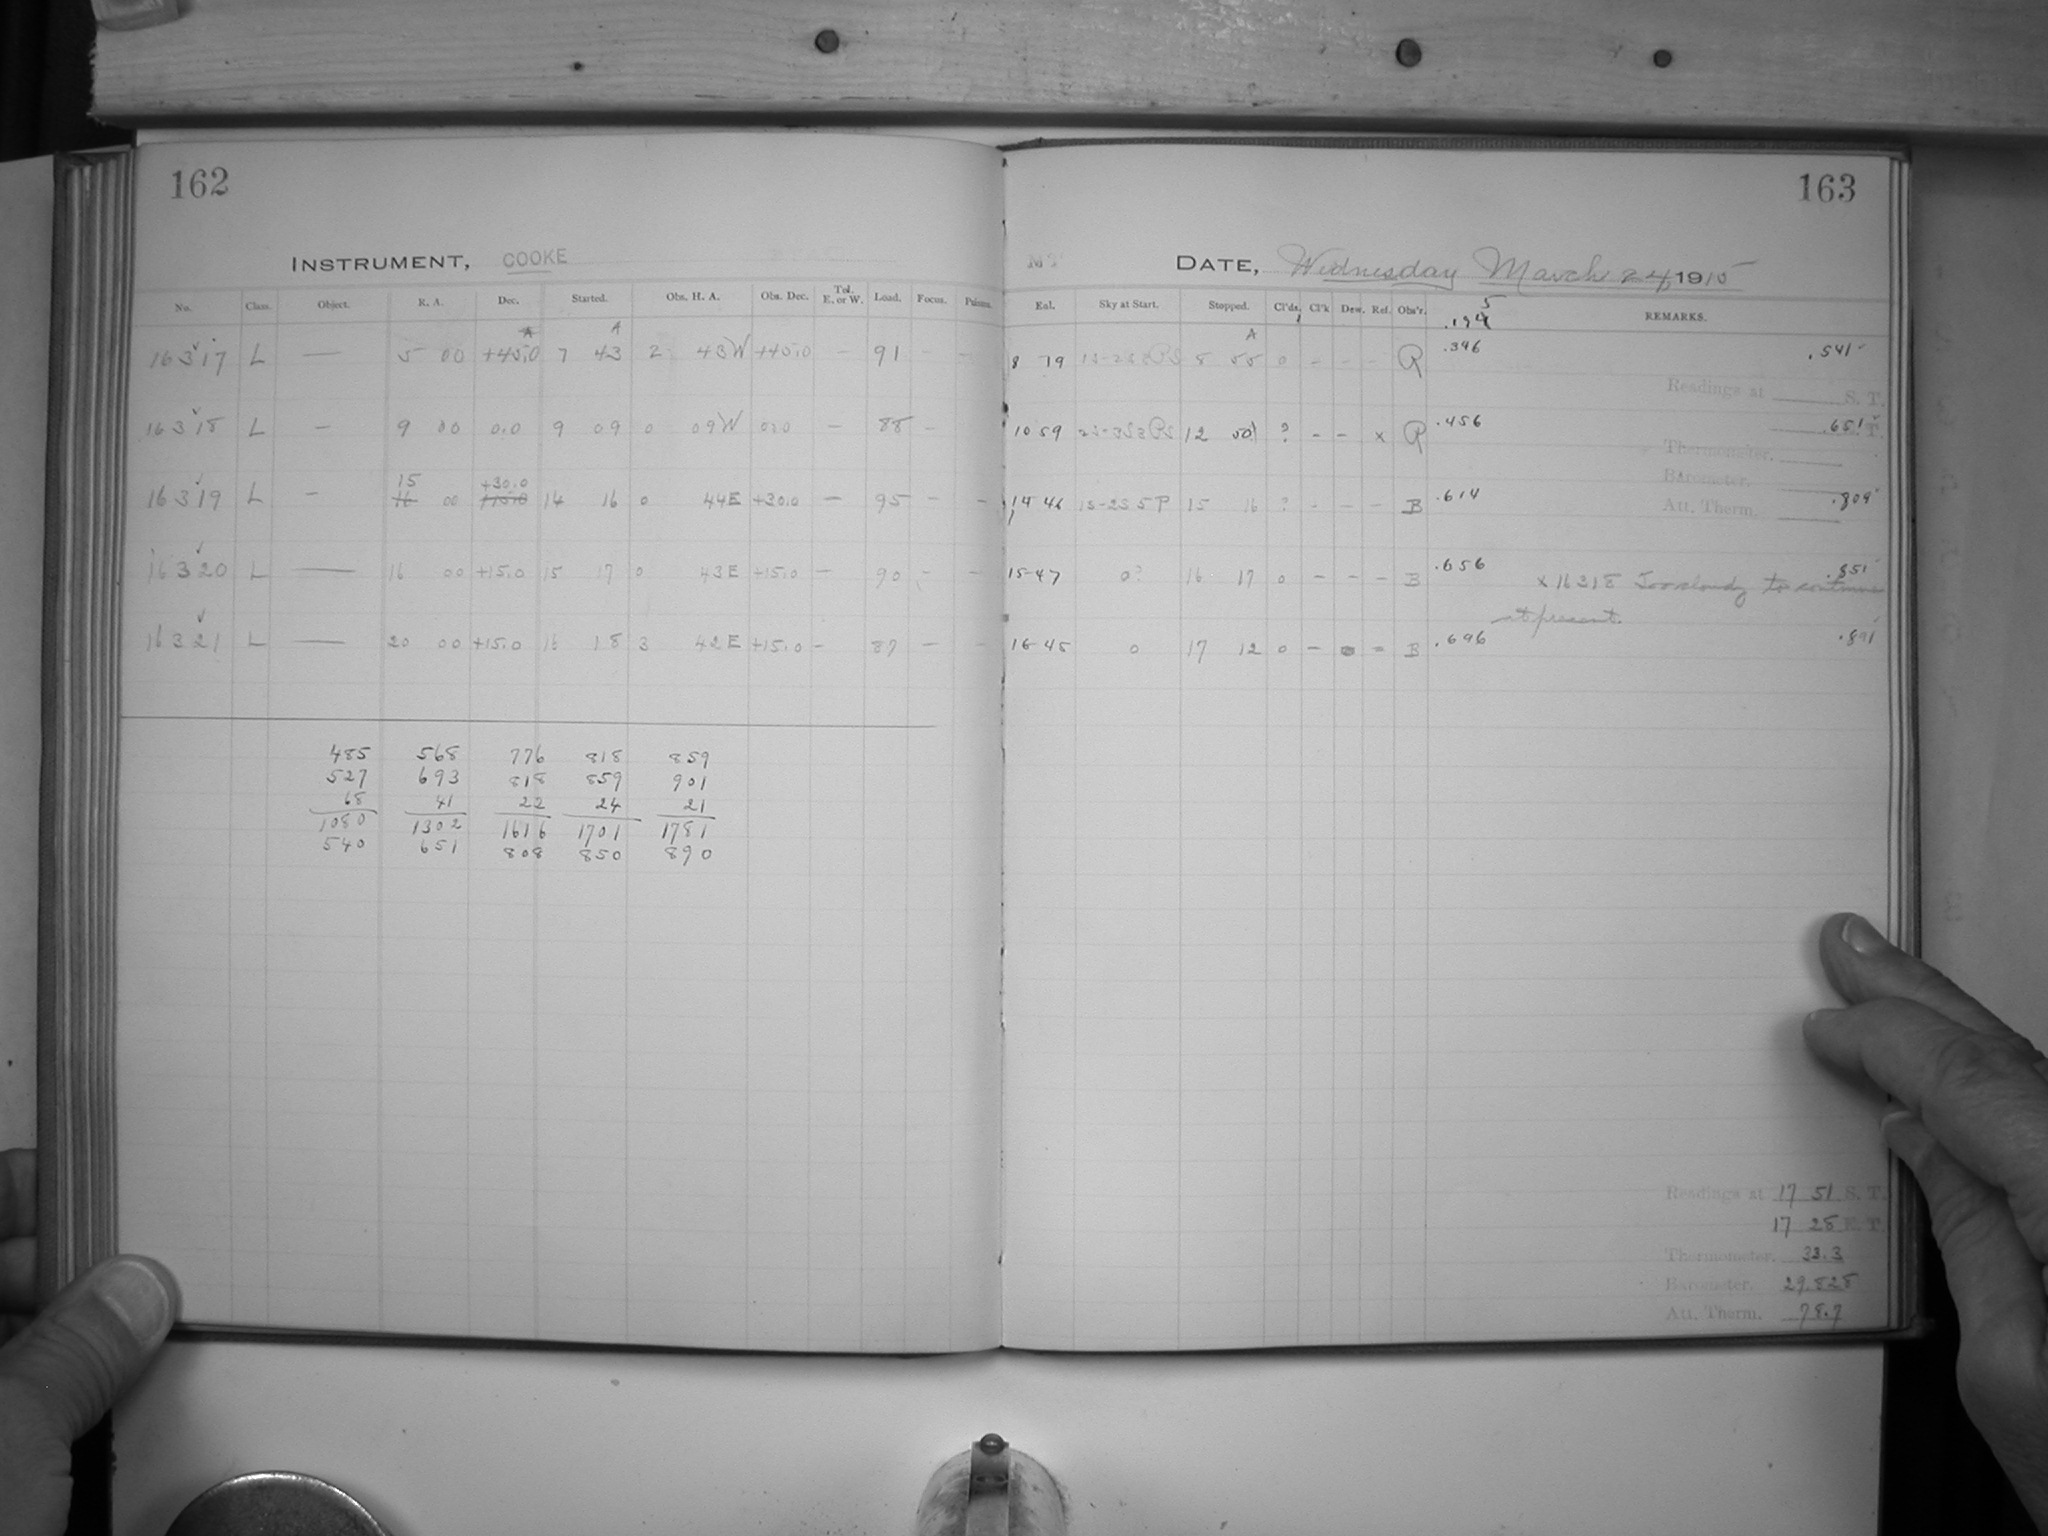 162
INSTRUMENT, COOKE
No. Class. Object. R. A. Dec. Started. Obs. H. A. Obs. Dec. Tel. E. or W. Load. Focus.
A A
16317 L — 5 00 +45.0 7 43 2 43W +45.0 — 91 —
16318 L — 9 00 0.0 9 09 0 09W 0.0 — 88 —
15 +30.0
16319 L — 16 00 +15.0 14 16 0 44E +30.0 — 95 — —
16320 L — 16 00 +15.0 15 17 0 43E +15.0 — 90 — —
16321 L — 20 00 +15.0 16 18 3 42E +15.0 — 87 — —
485 568 776 818 859
527 693 818 859 901
68 41 22 24 21
1080 1302 1616 1701 1781
540 651 808 850 890
163
DATE, Wednesday March 24, 1915
Exl. Sky at Start. Stopped. Cl'ds, Cl'k Dew. Ref. Obs'r. REMARKS.
5
A
8 19 8 55 0 - - - R .346 .541
Readings at S. T.
10 59 12 ? - - x R .456 .651
Thermometer.
Barometer.
14 46 1S-2S 5P 15 16 ? - - - B .614 .809
Att. Therm.
15-47 0? 16 17 0 - - - B .656 .851
x 16318 Too cloudy to continue
at present.
16 45 0 17 12 0 - - B .696 .891
Readings at 17 51 S. T.
17 28 E. T.
Thermometer. 33.3
Barometer. 29.828
Att. Therm. 78.7